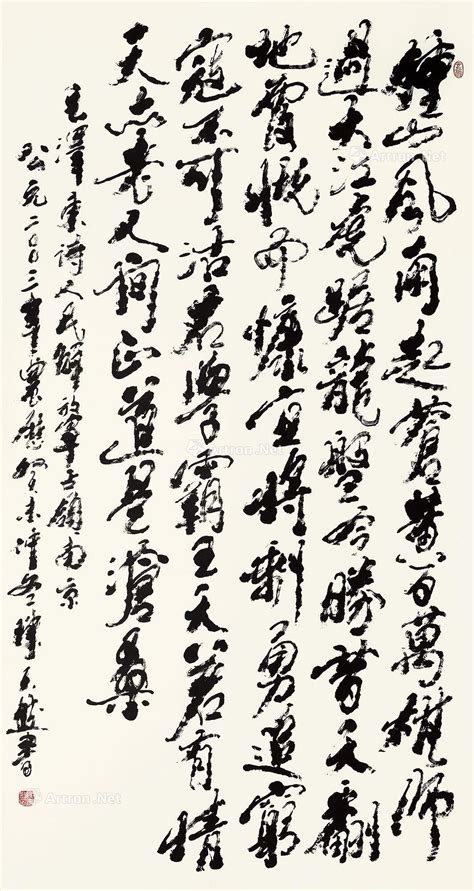 鍾山風雨起蒼黃百萬雄師
過大江虎踞龍盤今勝昔天翻
地覆慨而慷宜將剩勇追窮
寇不可沽名學霸王天若有情
天亦老人間正道是滄桑
毛澤東詩人民解放軍占領南京
公元二〇〇三年農歷癸未陳天然書
Artron.Net
Artron.Net
Artron.Net